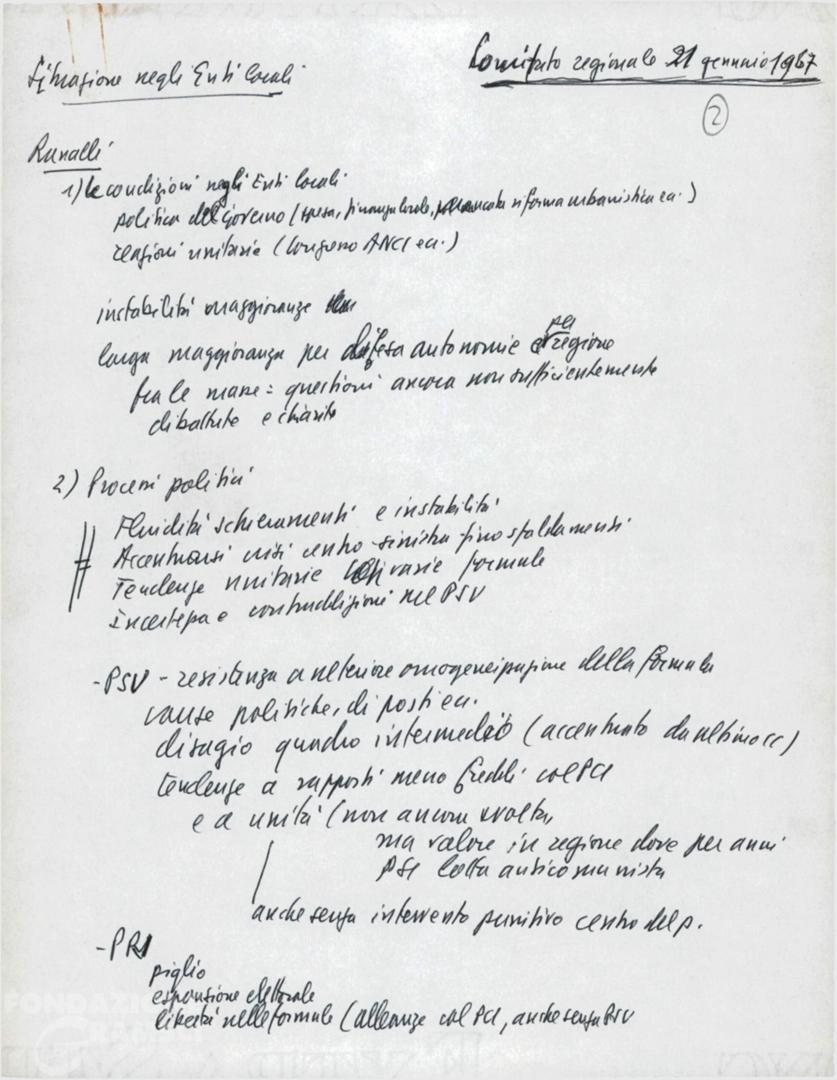 Situazione negli Enti locali
Comitato regionale 21 gennaio 1967
2
Ranalli
1) le condizioni negli Enti locali
politica del governo (spesa, finanza locale, mancata riforma urbanistica ecc.)
reazioni unitarie (Congresso ANCI ecc.)
instabilità maggioranze
larga maggioranza per difesa autonomie e per regione
fra le masse = questioni ancora non sufficientemente
dibattute e chiarite
2) Processi politici
Fluidità schieramenti e instabilità
Accentuarsi crisi centro-sinistra fino sfaldamenti
Tendenze unitarie con varie formule
Incertezza e contraddizioni nel PSU
- PSU - resistenza a ulteriore omogeneizzazione della formula
cause politiche, di posti ecc.
disagio quadro intermedio (accentuato da ultimo cc)
tendenze a rapporti meno freddi col PCI
e a unità (non ancora svolta,
ma valore in regione dove per anni
PSI lotta anticomunista
anche senza intervento punitivo centro del p.
- PRI
piglio
espansione elettorale
libertà nelle formule (alleanze col PCI, anche senza PSU
FONDAZIO
GRAMSCI